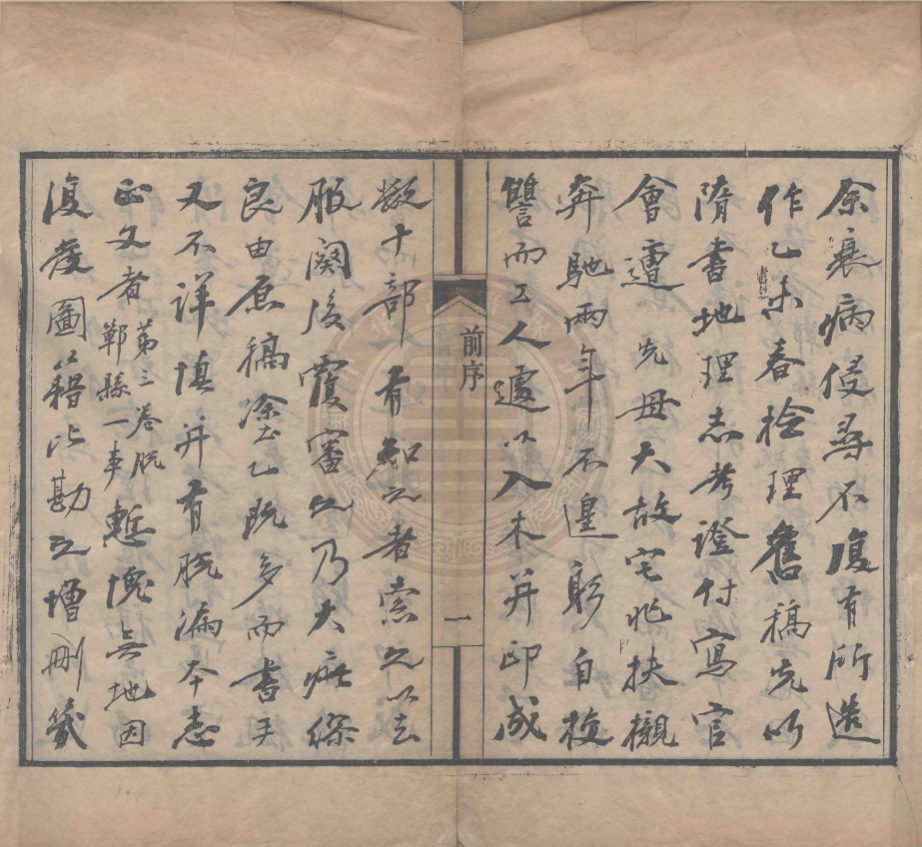 余衰病侵尋不復有所造
作乙未春檢理舊稿先以
隋書地理志考證付寫官
會遭先母大故宅兆扶櫬
奔馳兩年不遑躬自校
讐而工人遽以入木并印成
前序
一
數十部有知之者索之以去
服闋後覆審之乃大疵繆
良由原稿塗乙既多而書手
又不詳慎并有脫漏本志
正文者第三卷脫鄲縣一事慙愧無地因
復圖籍比勘之增刪幾